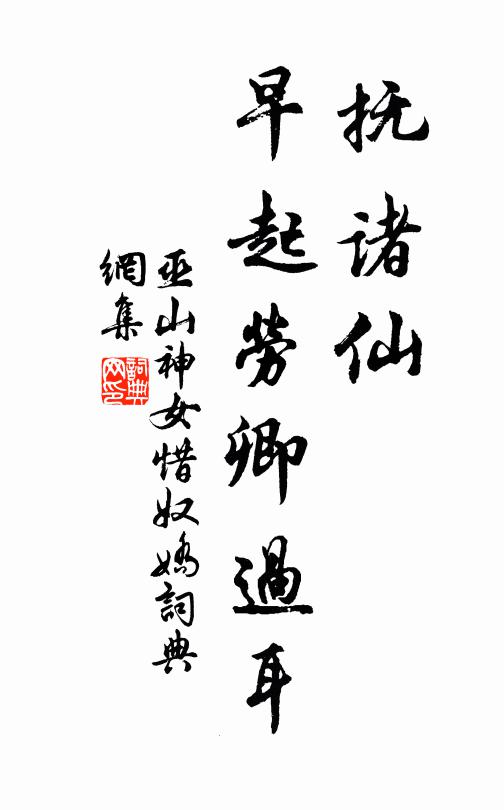 抚诸仙
早起勞卿過耳
巫山神女惜奴嬌詞典
網集
詞典
网印